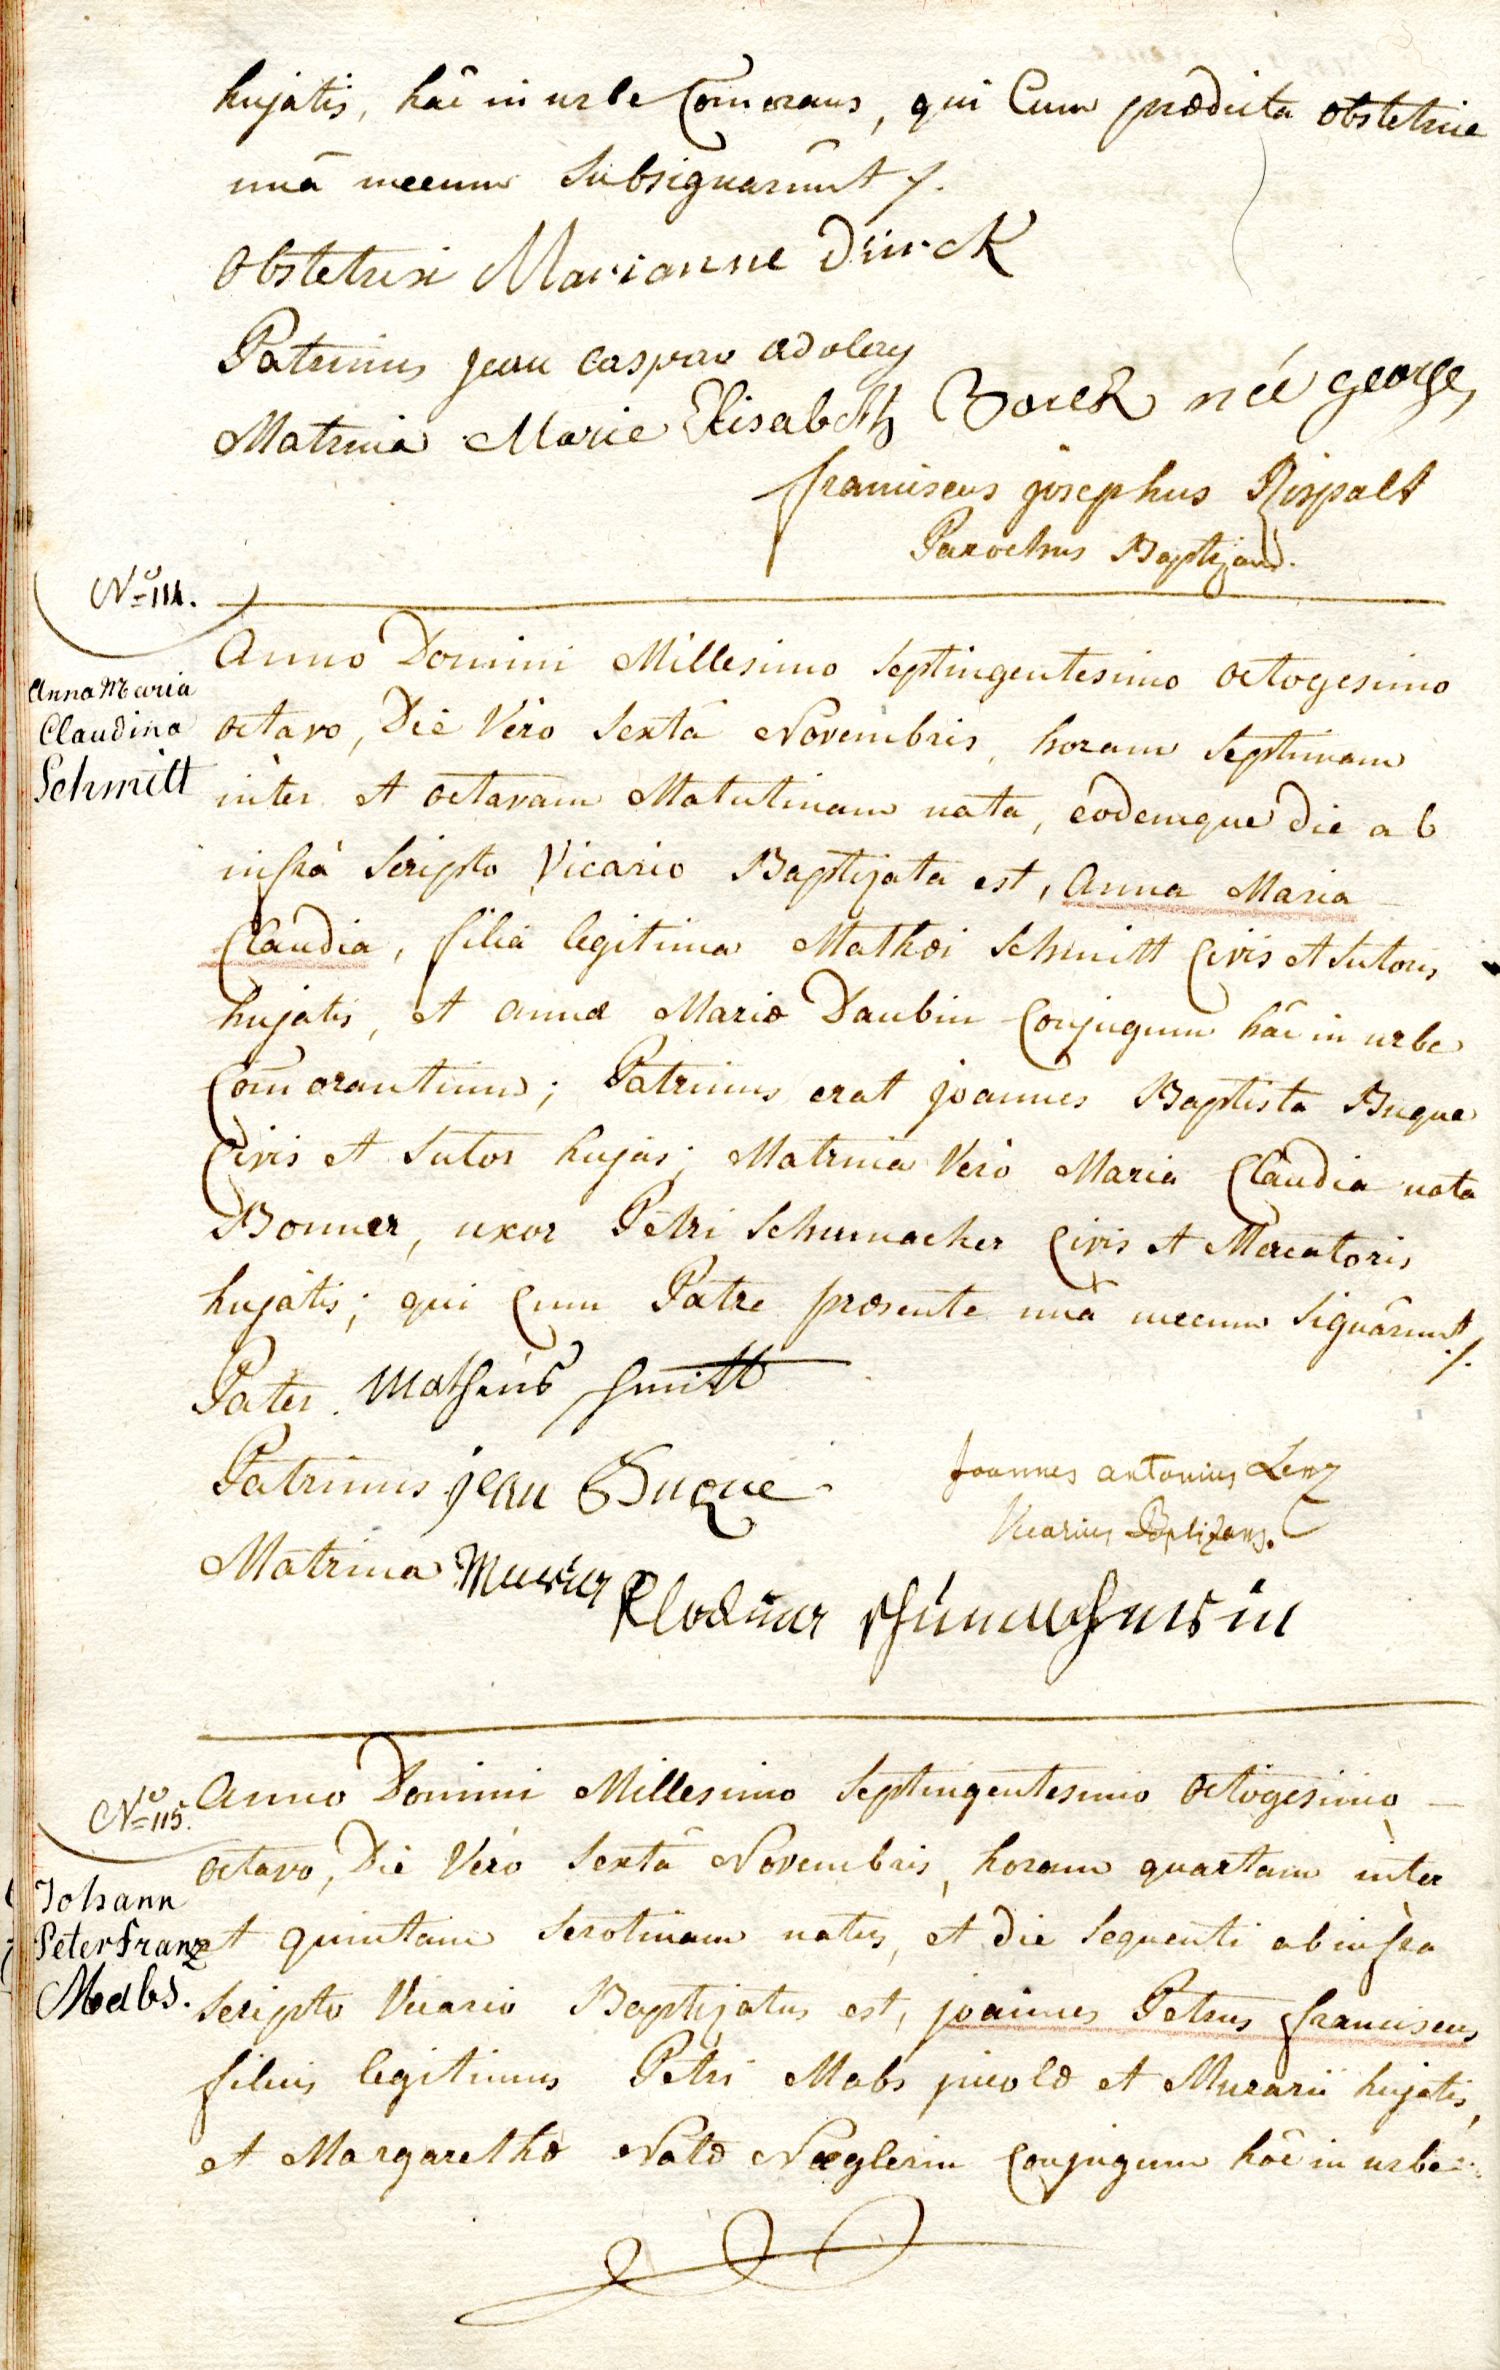 hujatis, hâc in urbe Com̃orans, qui Cum prædicta obstetrice
unâ mecum Subsignarûnt /.
Obstetrix Marianne Dürck
Patrinus jean Caspar adolay
Matrina Marie Elisabeth née george,
franciscus josephus Rispalt
Parochus Baptizand.
N.º 114.
Anna Maria
Claudina
Schmitt
Anno Domini Millesimo Septingentesimo octogesimo
octavo, Die Vero Sextâ Novembris, horam Septimam
inter et octavam Matutinam nata, eodemque die ab
infrà Scripto Vicario Baptizata est, Anna Maria
Claudia, filia legitima Mathæi Schmitt Civis et Sutoris
hujatis, et annæ Mariæ Daubin Conjugum hâc in urbe
Com̃orantium; Patrinus erat joannes Baptista Buque
Civis et Sutor hujas; Matrina Vero Maria Claudia nata
Bonner, uxor Petri Schumacher Civis et Mercatoris
hujatis; qui Cum Patre præsente unâ mecum Signârunt /.
Pater. Matheus Smitt
Patrinus jean Buque
Joannes antonius Lenz
Vicarius Baptizans.
Matrina Maria Klodina schumachersin
N.º 115.
Johann
Peter Franz
Mabs.
Anno Domini Millesimo Septingentesimo octogesimo
octavo, Die Vero Sextâ Novembris, horam quartam inter
et quintam Serotinam natus, et die Sequenti ab infra
Scripto Vicario Baptizatus est, joannes Petrus franciscus
filius legitimus Petri Mabs incolæ et Murarii hujatis,
et Margarethæ Natæ Næglerin Conjugum hâc in urbe